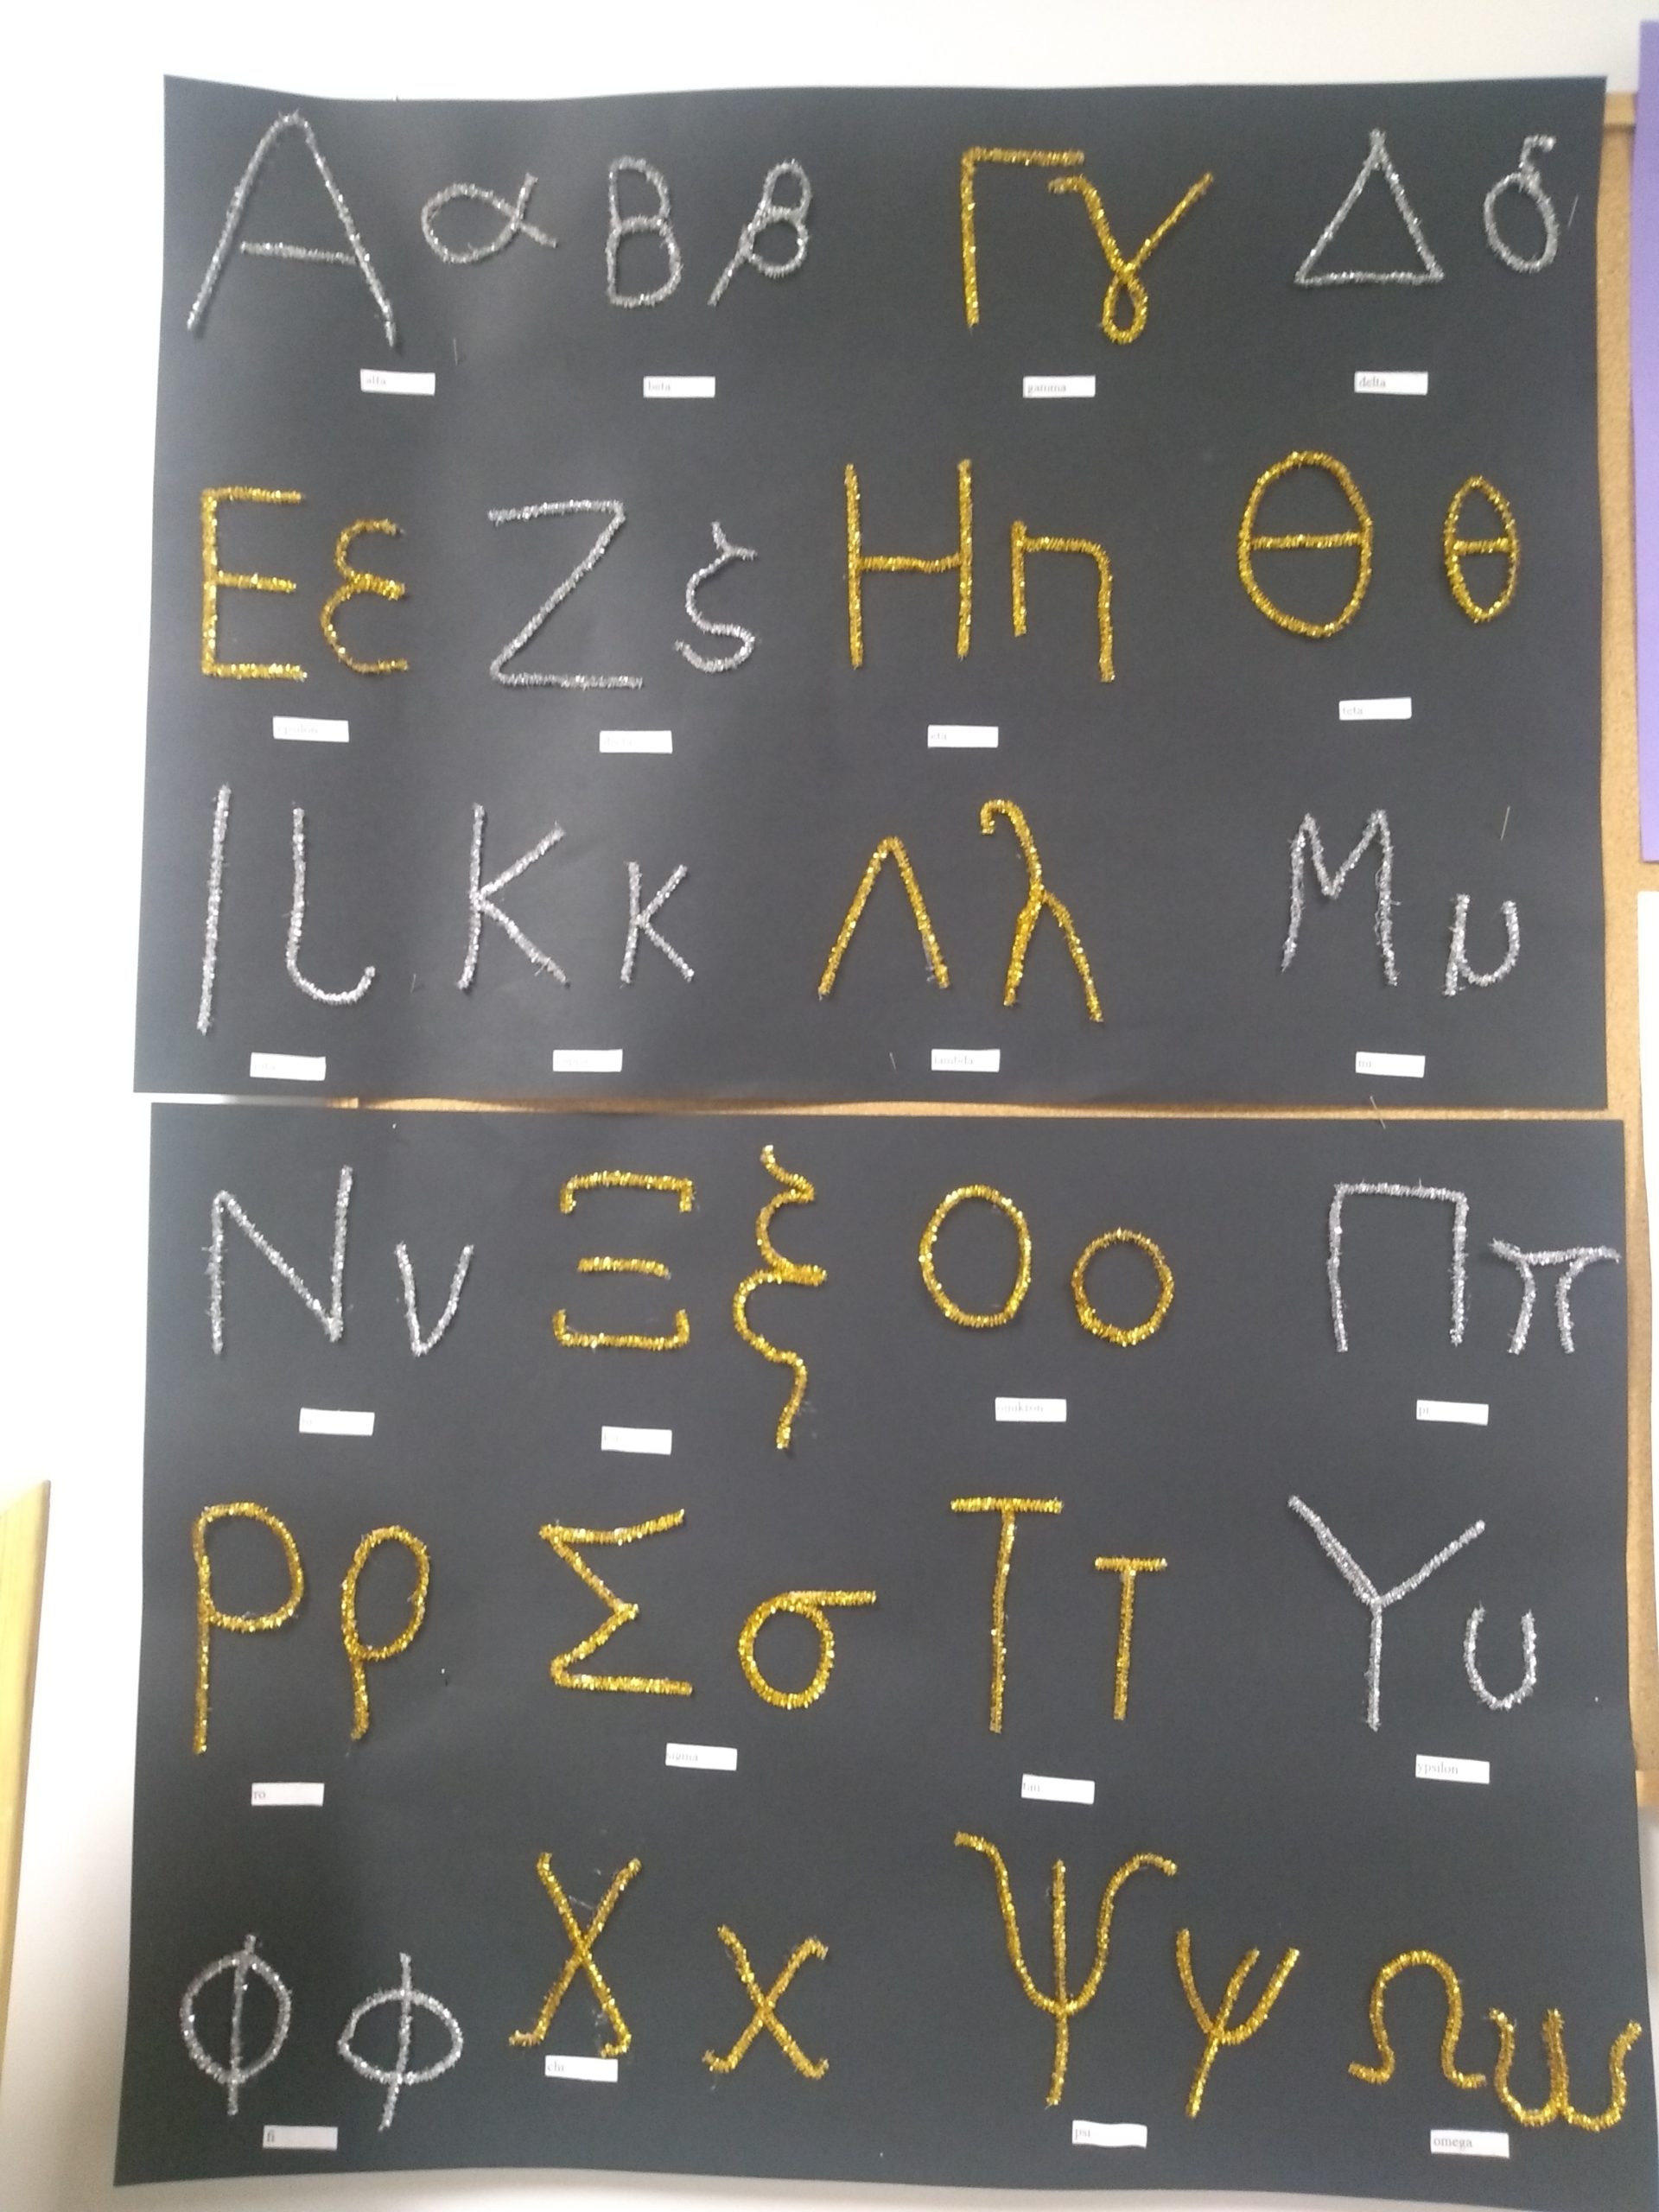 Α α Β β Γ γ Δ δ
alfa beta gamma delta
Ε ε Ζ ζ Η η Θ θ
epsilon eta teta
Ι ι Κ κ Λ λ Μ μ
lambda mi
Ν ν Ξ ξ Ο ο Π π
omikron pi
Ρ ρ Σ σ Τ τ Υ υ
ro sigma tau ypsilon
Φ φ Χ χ Ψ ψ Ω ω
fi chi psi omega